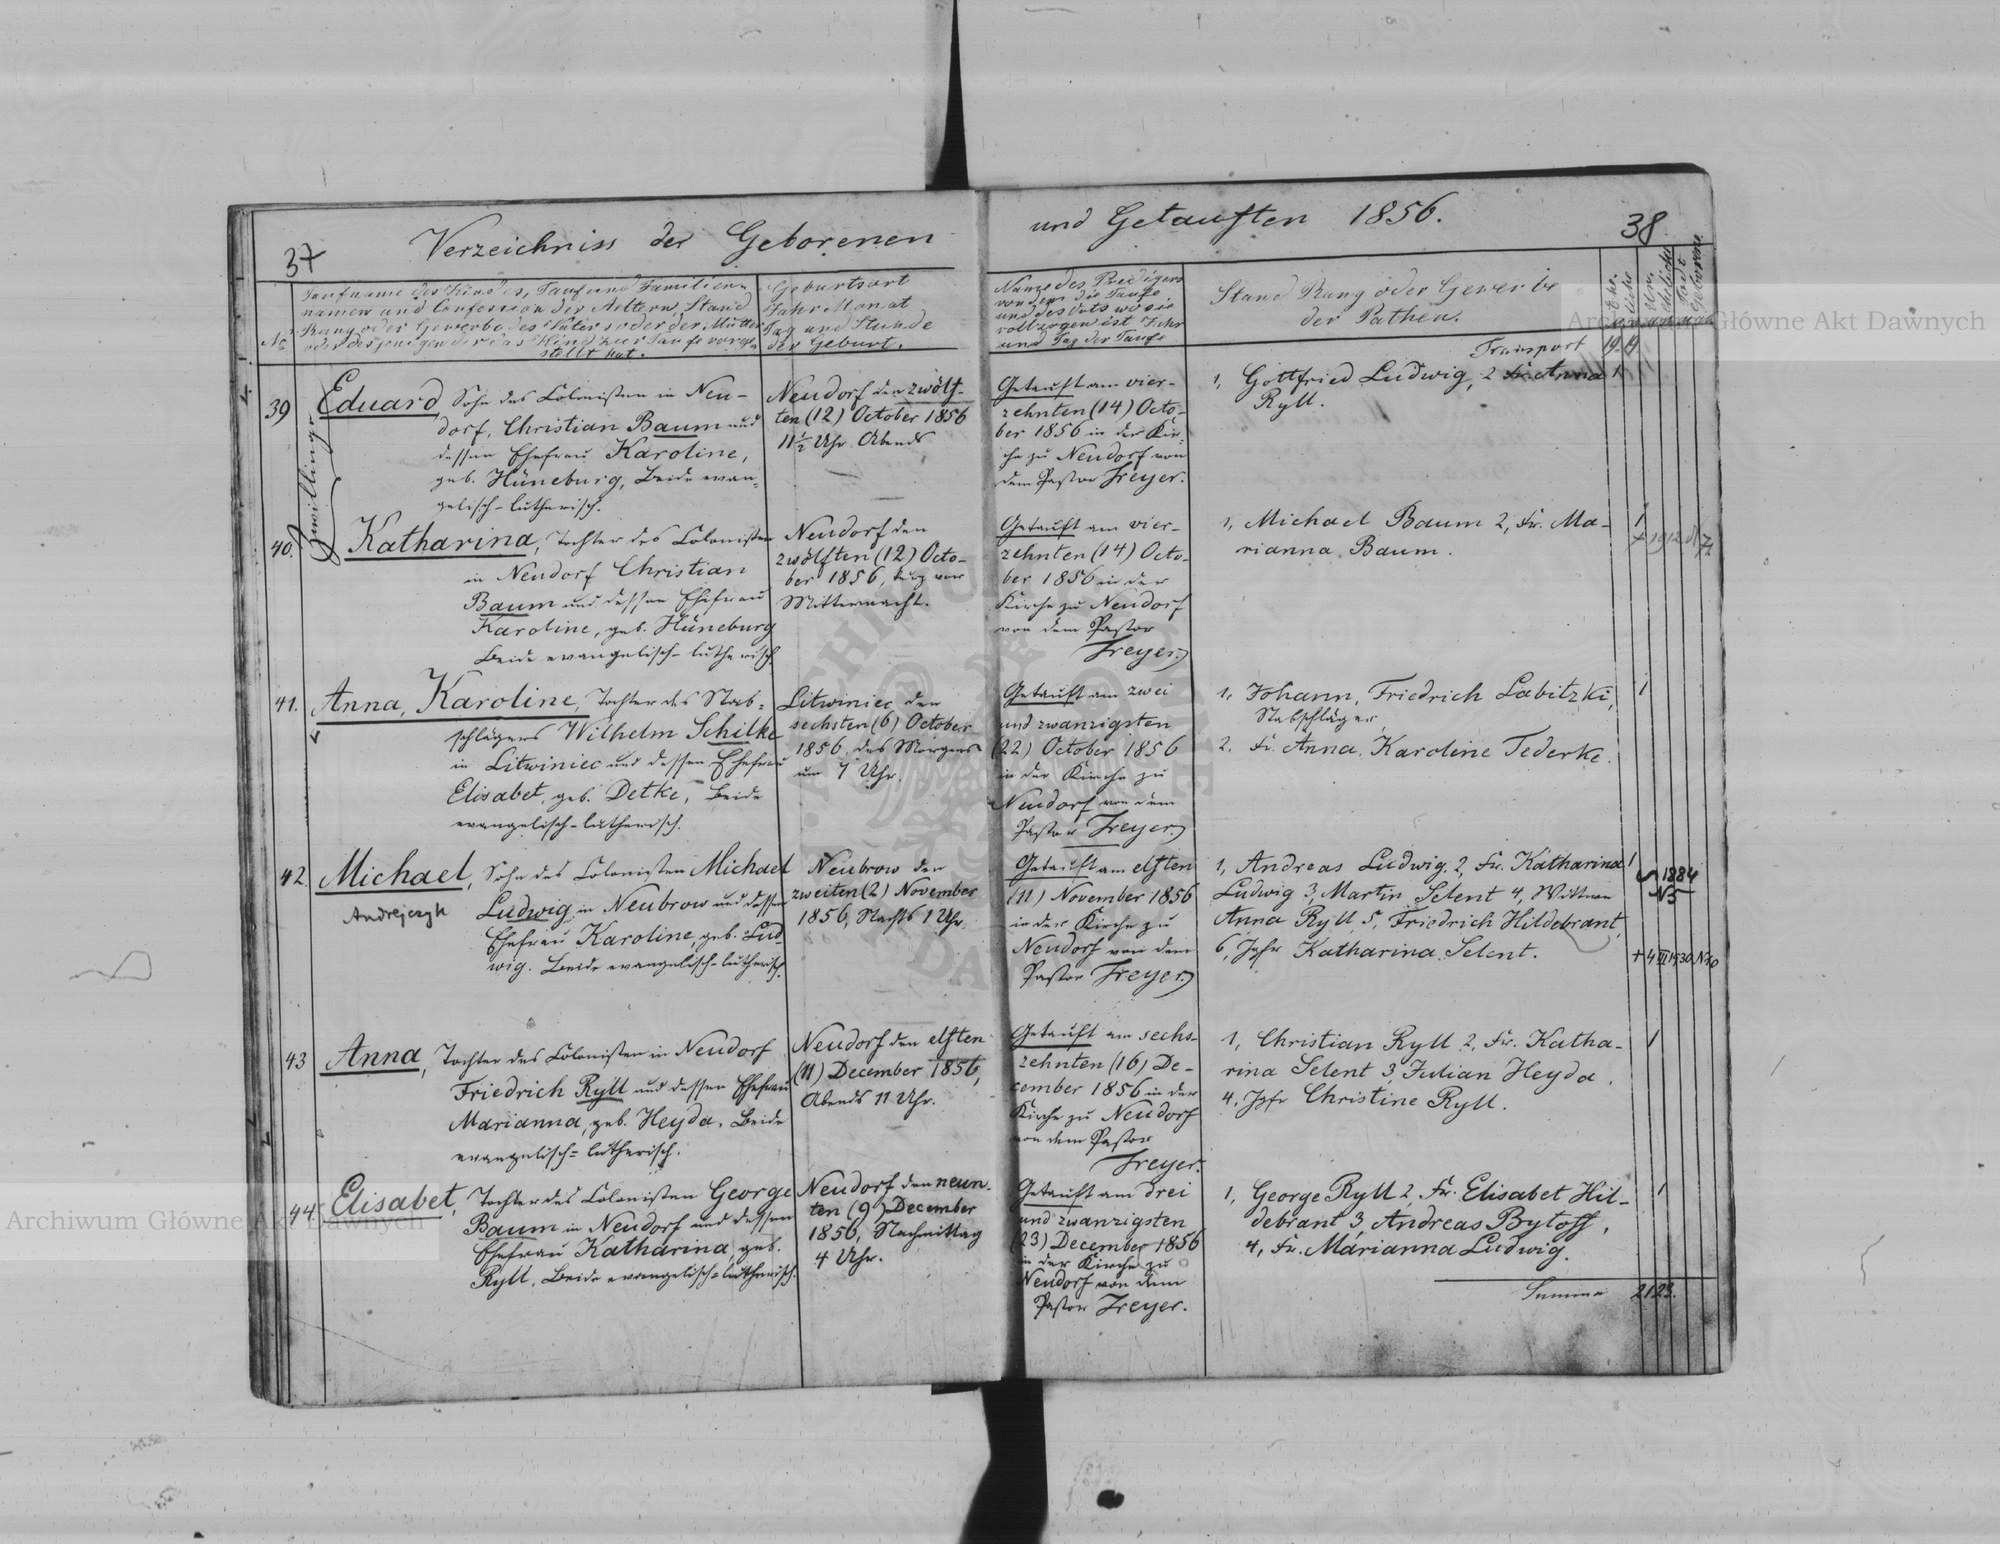 37
Verzeichniss der Geborenen
und Getauften 1856.
38.
No
Taufname des Kindes, Tauf und Familien-
namen und Confession der Aeltern, Stand
Rang oder Gewerbe des Vaters oder der Mutter
oder desjenigen der das Kind zur Taufe vorge-
stellt hat.
Geburtsort
Jahr Monat
Tag und Stunde
der Geburt.
Name des Predigers
von dem die Taufe
und des Orts wo sie
vollzogen ist Jahr
und Tag der Taufe
Stand Rang oder Gewerbe
der Pathen.
Transport 19 19
Zwillinge
39
Eduard Sohn des Colonisten in Neu-
dorf, Christian Baum und
dessen Ehefrau Karoline,
geb. Hüneburg, Beide evan-
gelisch-lutherisch.
Neudorf den zwölf-
ten (12) October 1856
11½ Uhr Abends
Getauft am vier-
zehnten (14) Octo-
ber 1856 in der Kir-
che zu Neudorf von
dem Pastor Freyer.
1, Gottfried Ludwig, 2 Fr. Anna
Ryll.
1
40.
Katharina, Tochter des Colonisten
in Neudorf Christian
Baum und dessen Ehefrau
Karoline, geb. Hüneburg
Beide evangelisch-lutherisch
Neudorf den
zwölften (12) Octo-
ber 1856, kurz vor
Mitternacht.
Getauft am vier-
zehnten (14) Octo-
ber 1856 in der
Kirche zu Neudorf
von dem Pastor
Freyer.
1, Michael Baum 2, Fr. Ma-
rianna Baum.
1
+ 1912 N 7
41.
Anna, Karoline, Tochter des Stab-
schlägers Wilhelm Schilke
in Litwiniec und dessen Ehefrau
Elisabet, geb. Detke, Beide
evangelisch-lutherisch.
Litwiniec den
sechsten (6) October
1856 des Morgens
um 7 Uhr.
Getauft am zwei
und zwanzigsten
(22) October 1856
in der Kirche zu
Neudorf von dem
Pastor Freyer.
1, Johann, Friedrich Labitzki,
Stabschläger,
2. Fr. Anna, Karoline Tederke.
1
42
Michael, Sohn des Colonisten Michael
Andrejczyk
Ludwig in Neubrow und dessen
Ehefrau Karoline, geb. Lud-
wig. Beide evangelisch-lutherisch.
Neubrow den
zweiten (2) November
1856, Nachts 1 Uhr.
Getauft am elften
(11) November 1856
in der Kirche zu
Neudorf von dem
Pastor Freyer.
1, Andreas Ludwig, 2, Fr. Katharina
Ludwig 3, Martin Selent 4, Wittwe
Anna Ryll, 5, Friedrich Hildebrant,
6, Jgfr Katharina Selent.
1
1884
N5
43
Anna, Tochter des Colonisten in Neudorf
Friedrich Ryll und dessen Ehefrau
Marianna, geb. Heyda. Beide
evangelisch-lutherisch.
Neudorf den elften
(11) December 1856,
Abends 11 Uhr.
Getauft am sechs-
zehnten (16) De-
cember 1856 in der
Kirche zu Neudorf
von dem Pastor
Freyer.
1, Christian Ryll 2, Fr. Katha-
rina Selent 3, Julian Heyda.
4, Jgfr Christine Ryll.
1
44
Elisabet, Tochter des Colonisten George
Baum in Neudorf und dessen
Ehefrau Katharina, geb.
Ryll, Beide evangelisch-lutherisch.
Neudorf den neun-
ten (9) December
1856, Nachmittag
4 Uhr.
Getauft am drei
und zwanzigsten
(23) December 1856
in der Kirche zu
Neudorf von dem
Pastor Freyer.
1, George Ryll 2, Fr. Elisabet Hil-
debrant 3 Andreas Bytoff,
4, Fr. Marianna Ludwig.
1
Summa 21 23.
Archiwum Główne Akt Dawnych
Archiwum Główne Akt Dawnych